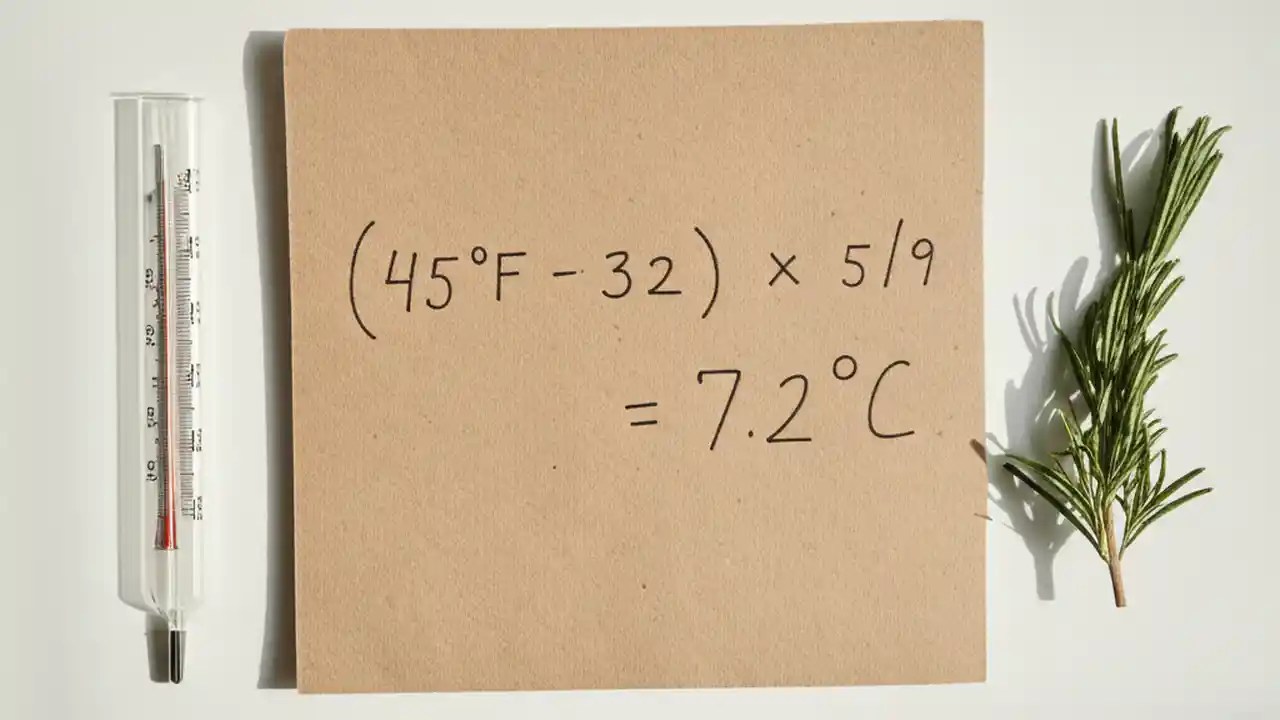 (45°F - 32) × 5/9
= 7.2°C